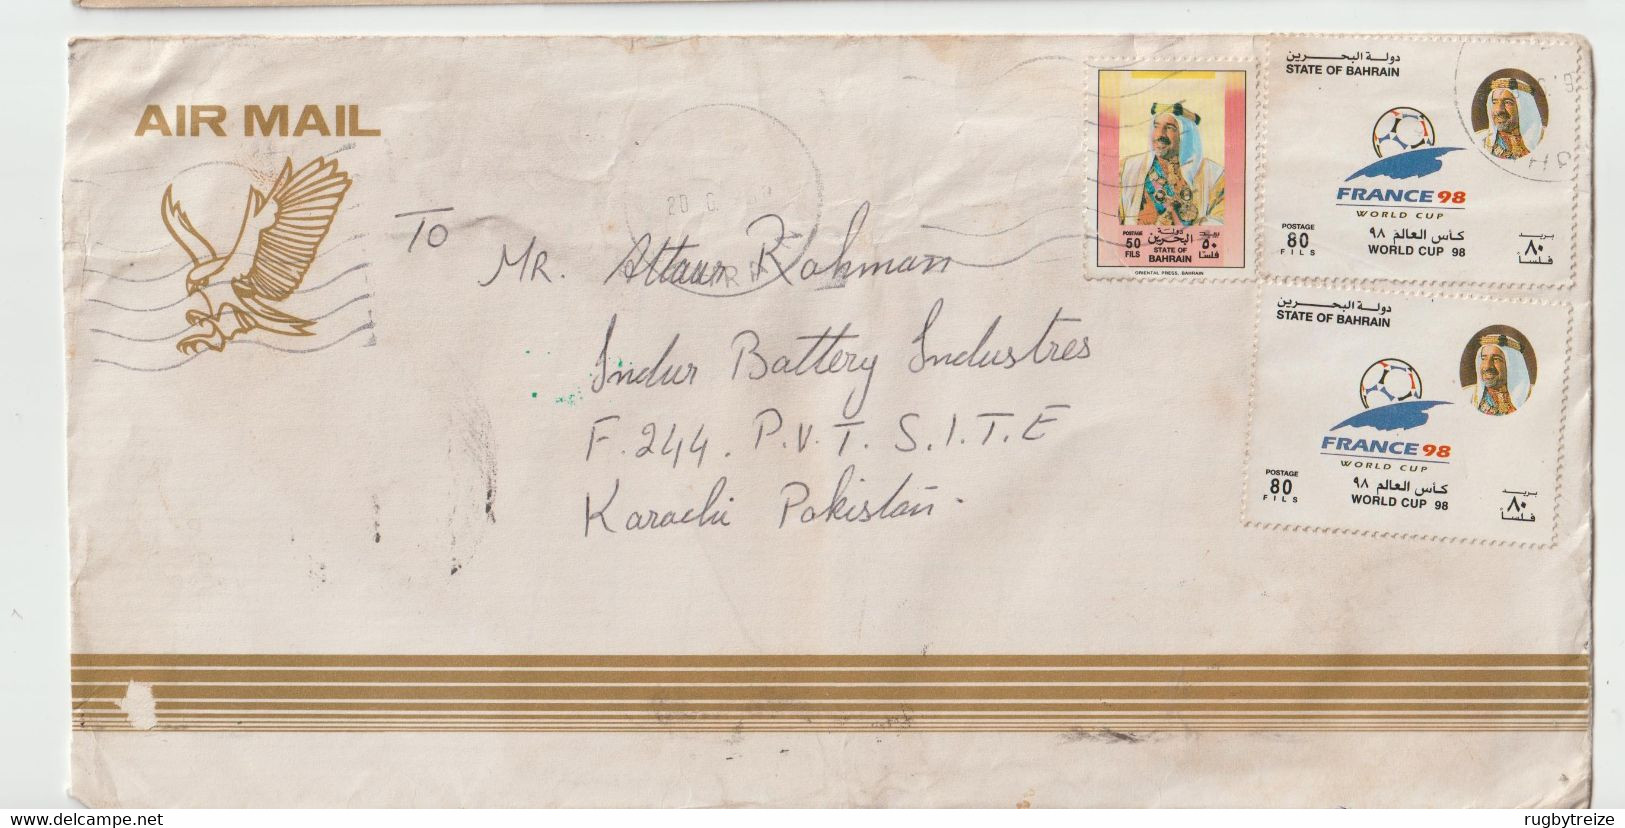 AIR MAIL
TO
MR. Attaur Rahman
Indur Battery Industres
F.244. P.V.T. S.I.T.E
Karachi Pakistan.
20
POSTAGE
50
FILS
دولة
البحرين
STATE OF
BAHRAIN
بريد
٥٠
فلسا
ORIENTAL PRESS, BAHRAIN
دولة البحرين
STATE OF BAHRAIN
FRANCE 98
WORLD CUP
POSTAGE
80
FILS
كأس العالم ٩٨
WORLD CUP 98
بريد
٨٠
فلساً
دولة البحرين
STATE OF BAHRAIN
FRANCE 98
WORLD CUP
POSTAGE
80
FILS
كأس العالم ٩٨
WORLD CUP 98
بريد
٨٠
فلساً
delcampe.net
rugbytreize